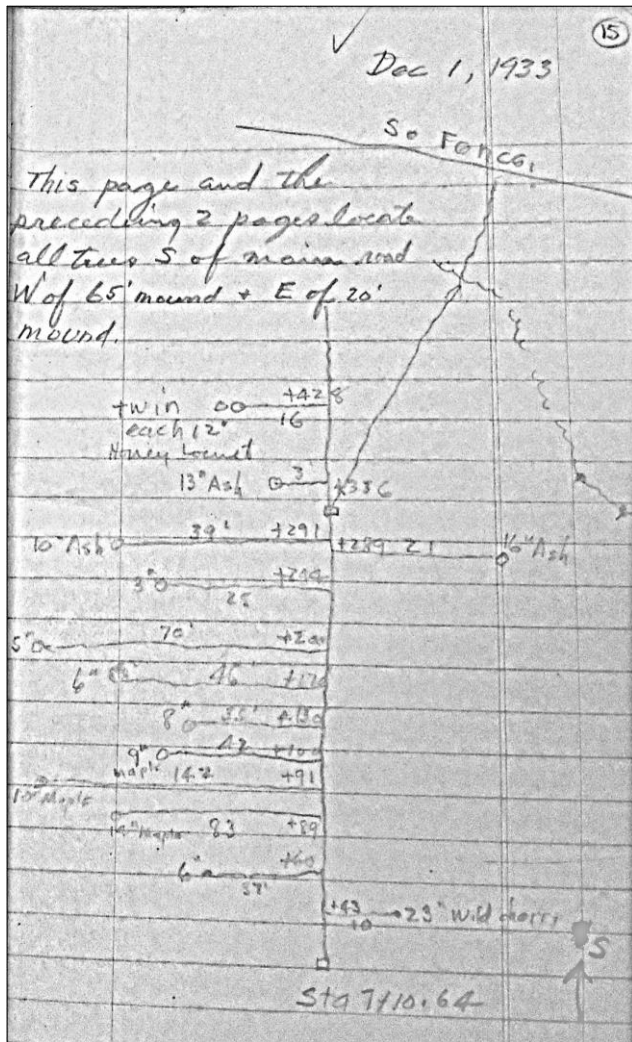 15
Dec 1, 1933
So Fence,
This page and the
preceeding 2 pages locate
all trees S of main road
W of 65' mound + E of 20'
mound.
+428
twin 16
each 12"
Honey Locust
13" Ash 3' +336
10" Ash 39' +291 +289 21 16" Ash
3" 25
5" 70' +200
6" 46' +170
8" 35' +130
9" 42 +100
maple 142 +91
Maple
14" Maple 83 +89
6" +60
37'
+43 23" Wild cherry
10
S
Sta 7+10.64